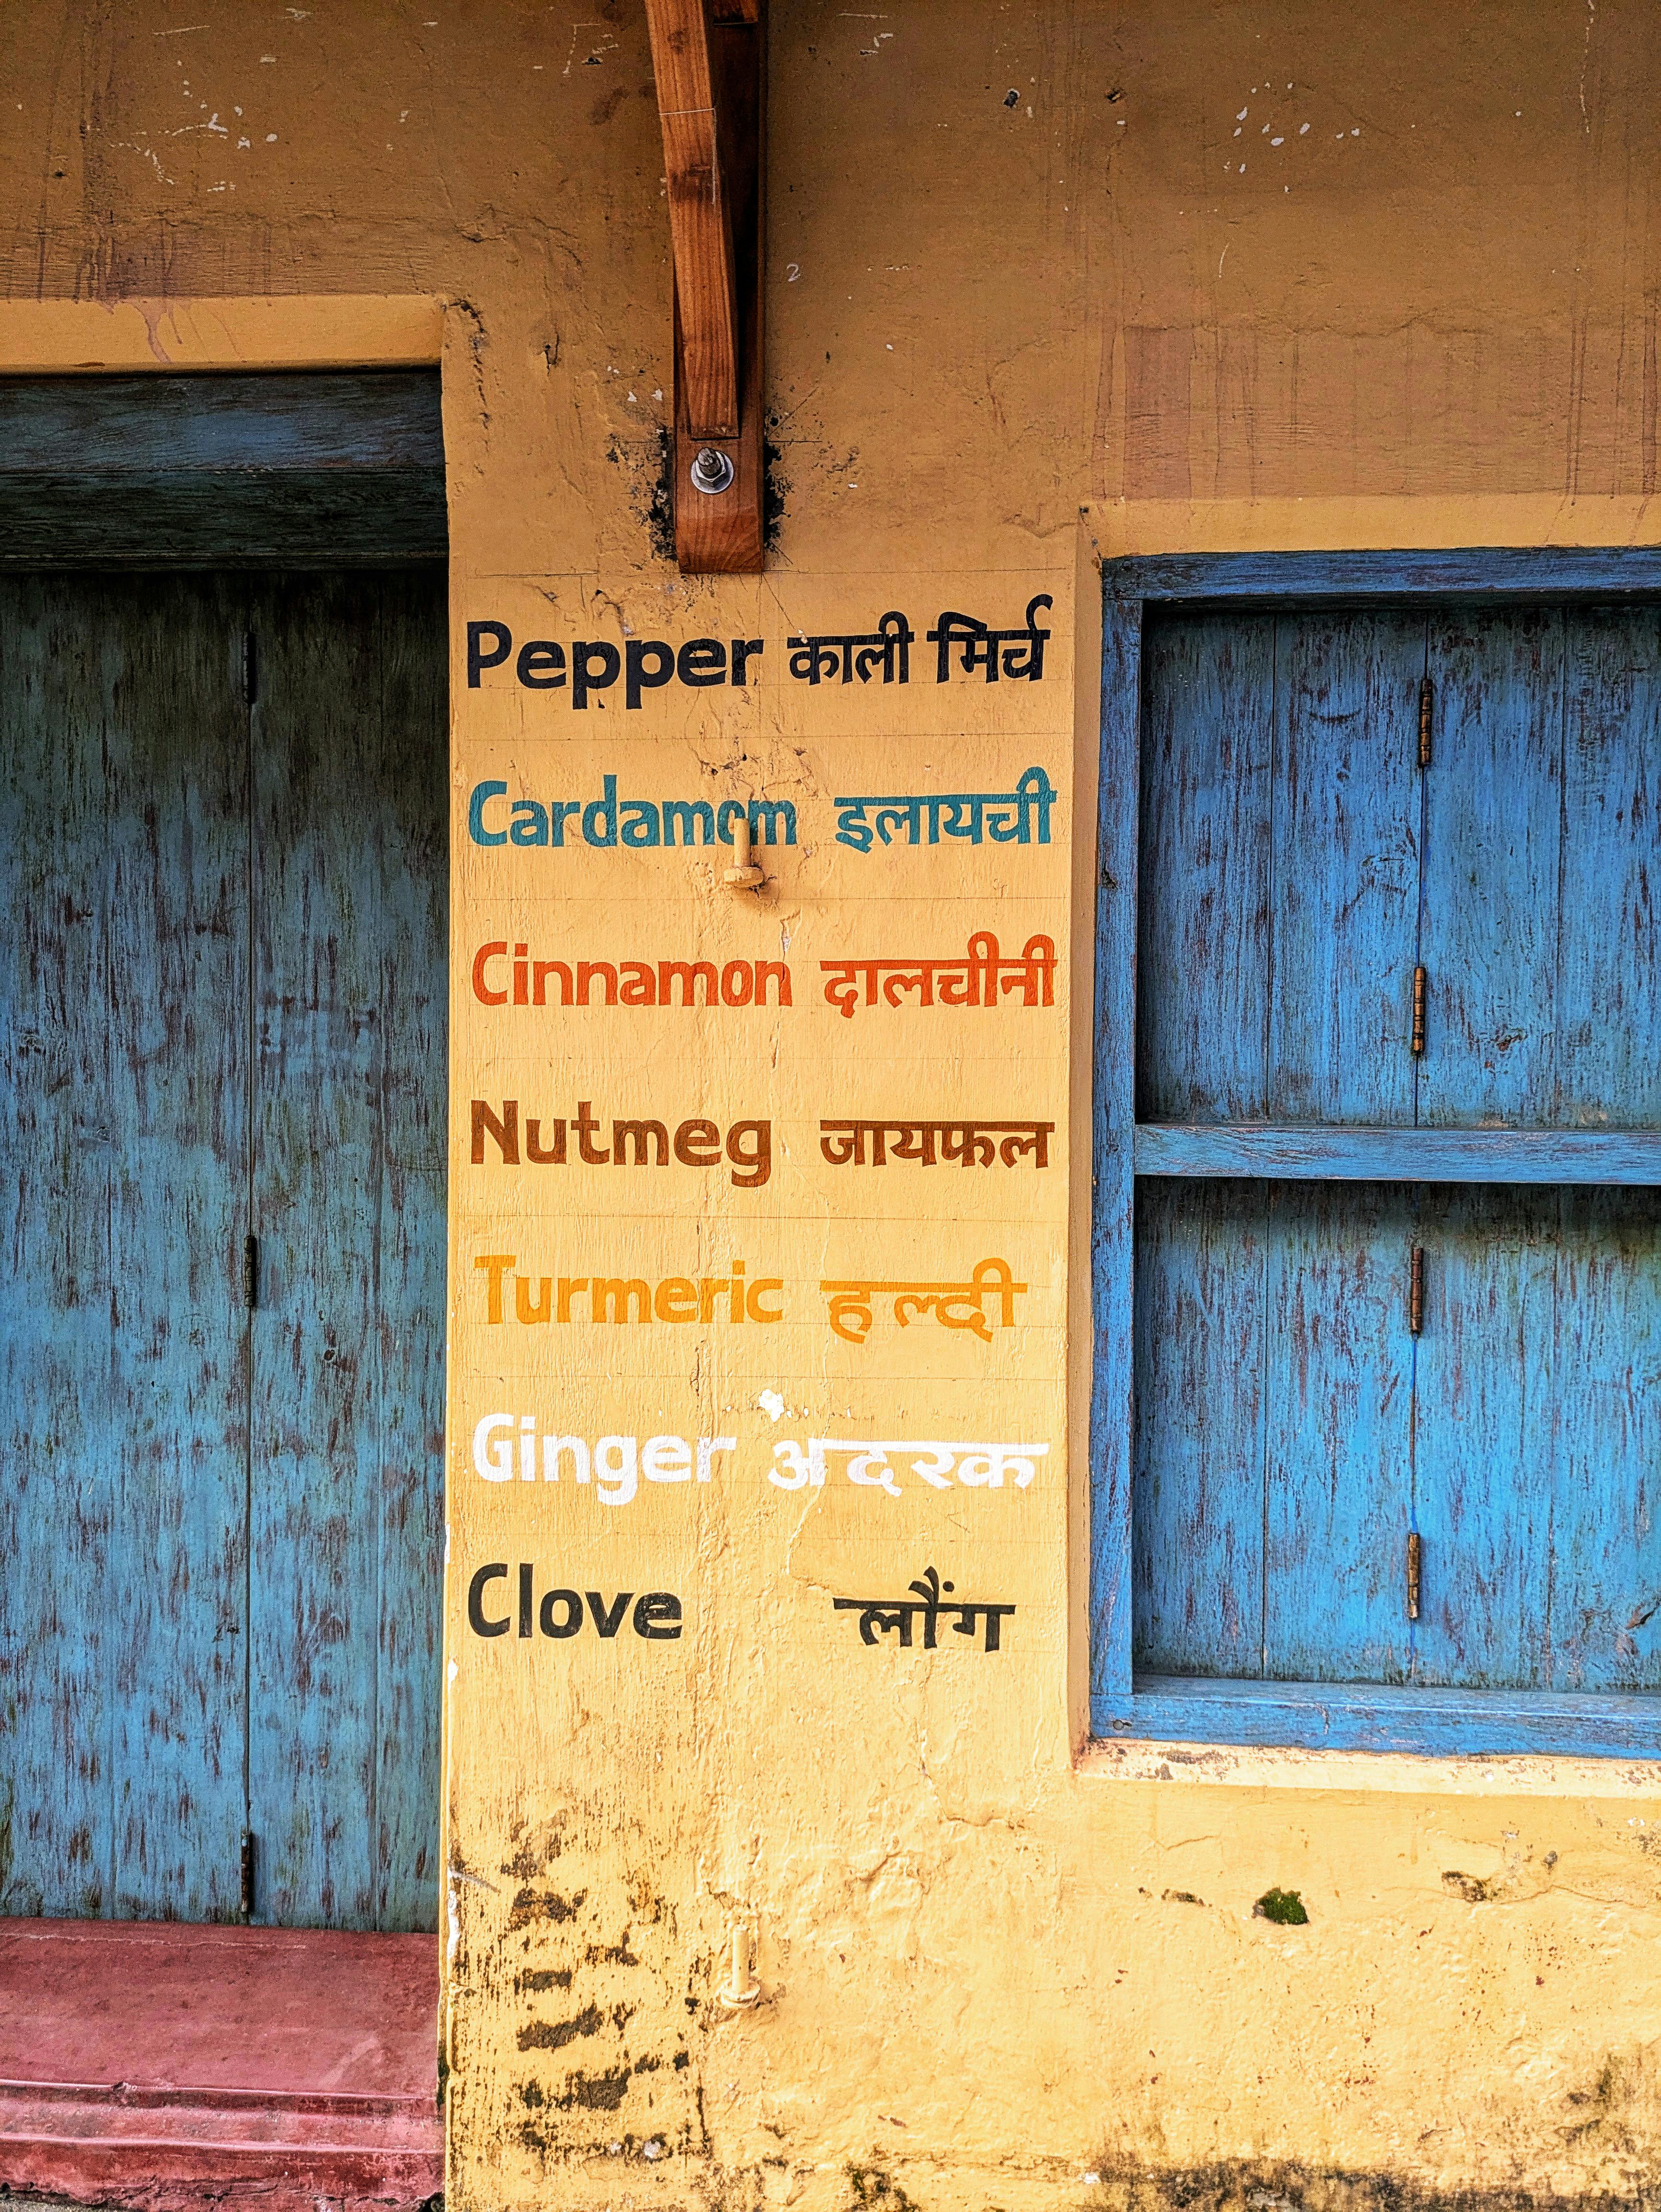 Pepper काली मिर्च
Cardamom इलायची
Cinnamon दालचीनी
Nutmeg जायफल
Turmeric हल्दी
Ginger अदरक
Clove लौंग